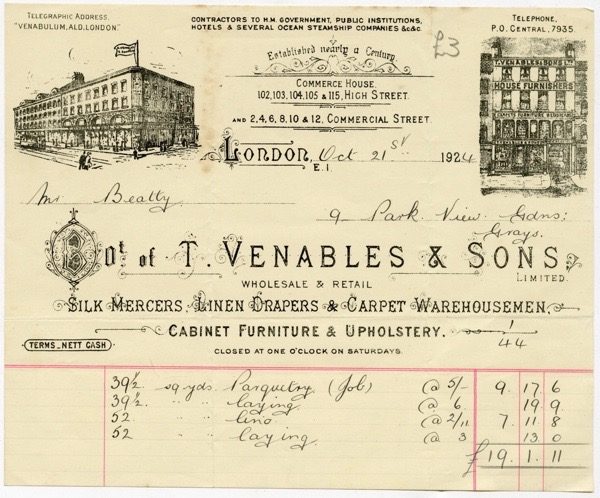 TELEGRAPHIC ADDRESS,
"VENABULUM, ALD, LONDON."
CONTRACTORS TO H.M. GOVERNMENT, PUBLIC INSTITUTIONS,
HOTELS & SEVERAL OCEAN STEAMSHIP COMPANIES &c &c.
TELEPHONE,
P.O. CENTRAL, 7935.
£3
Established nearly a Century
COMMERCE HOUSE.
102, 103, 104, 105 & 115, HIGH STREET.
AND 2, 4, 6, 8, 10 & 12, COMMERCIAL STREET.
T. VENABLES & SONS LTD
HOUSE FURNISHERS
LONDON, Oct 21st 1924
E.1.
Mr Beatty
9 Park View Gdns:
Grays.
Bot of T. VENABLES & SONS,
LIMITED.
WHOLESALE & RETAIL
SILK MERCERS, LINEN DRAPERS & CARPET WAREHOUSEMEN,
CABINET FURNITURE & UPHOLSTERY. 1/44
TERMS_NETT CASH
CLOSED AT ONE O'CLOCK ON SATURDAYS.
39½ sq yds Parquetry (Job) @ 5/- 9. 17 6
39½ " " laying @ 6 19 9
52 " " lino @ 2/11 7. 11 8
52 " " laying @ 3 13 0
£19. 1. 11